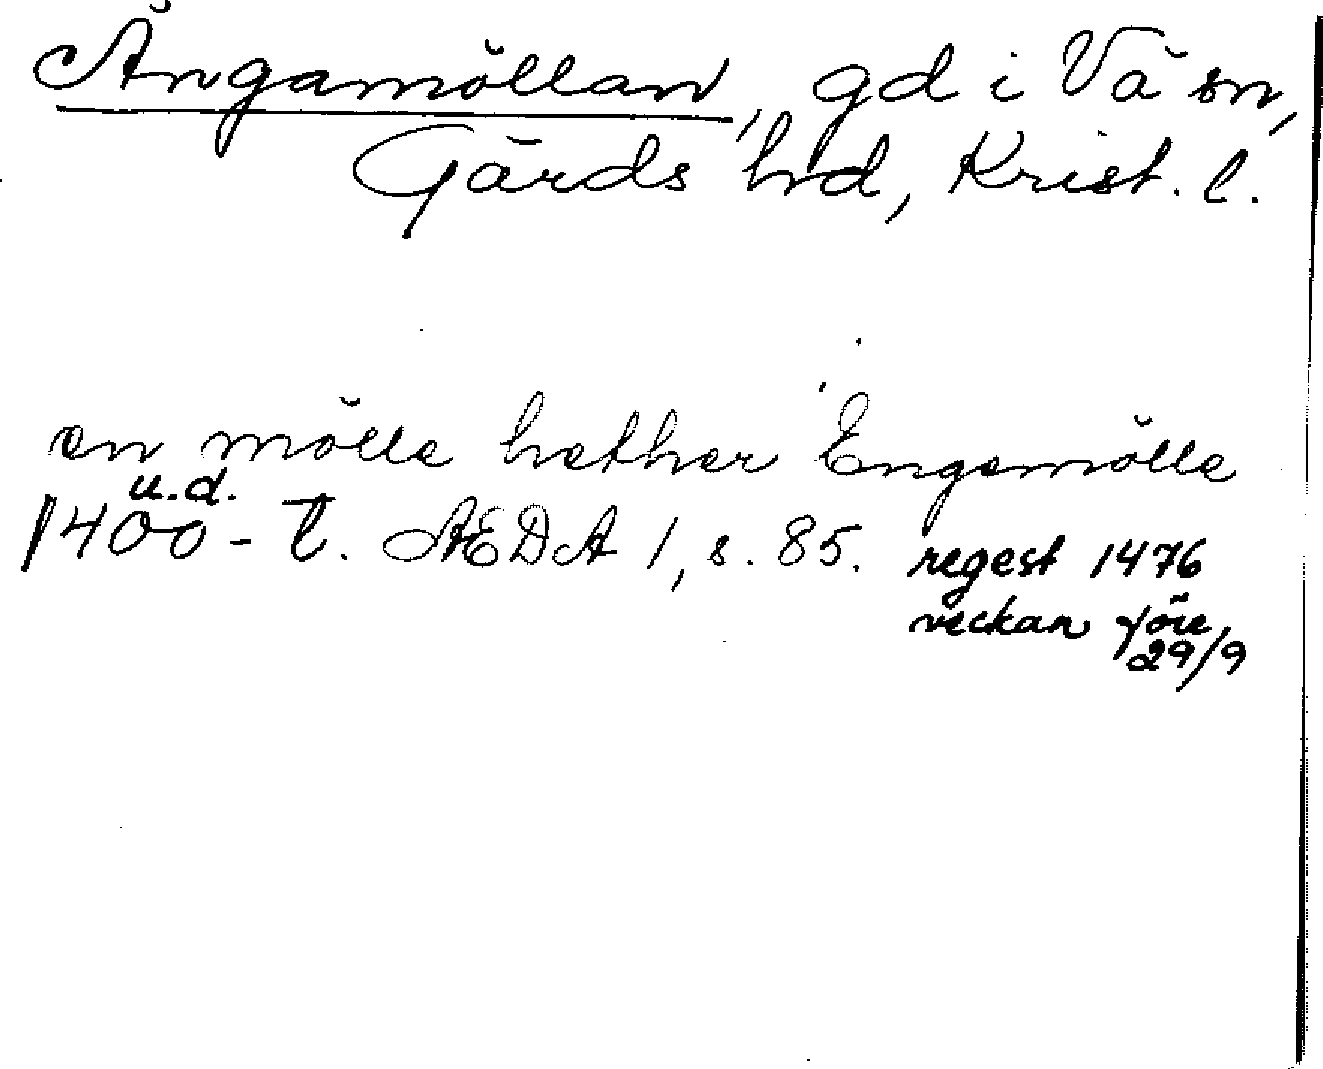 Ängamöllan, gd i Vä sn,
Gärds hd, Krist. l.
en mölle hether Engemölle
u.d.
1400-t. ÆDA 1, s. 85. regest 1476
veckan före
29/9